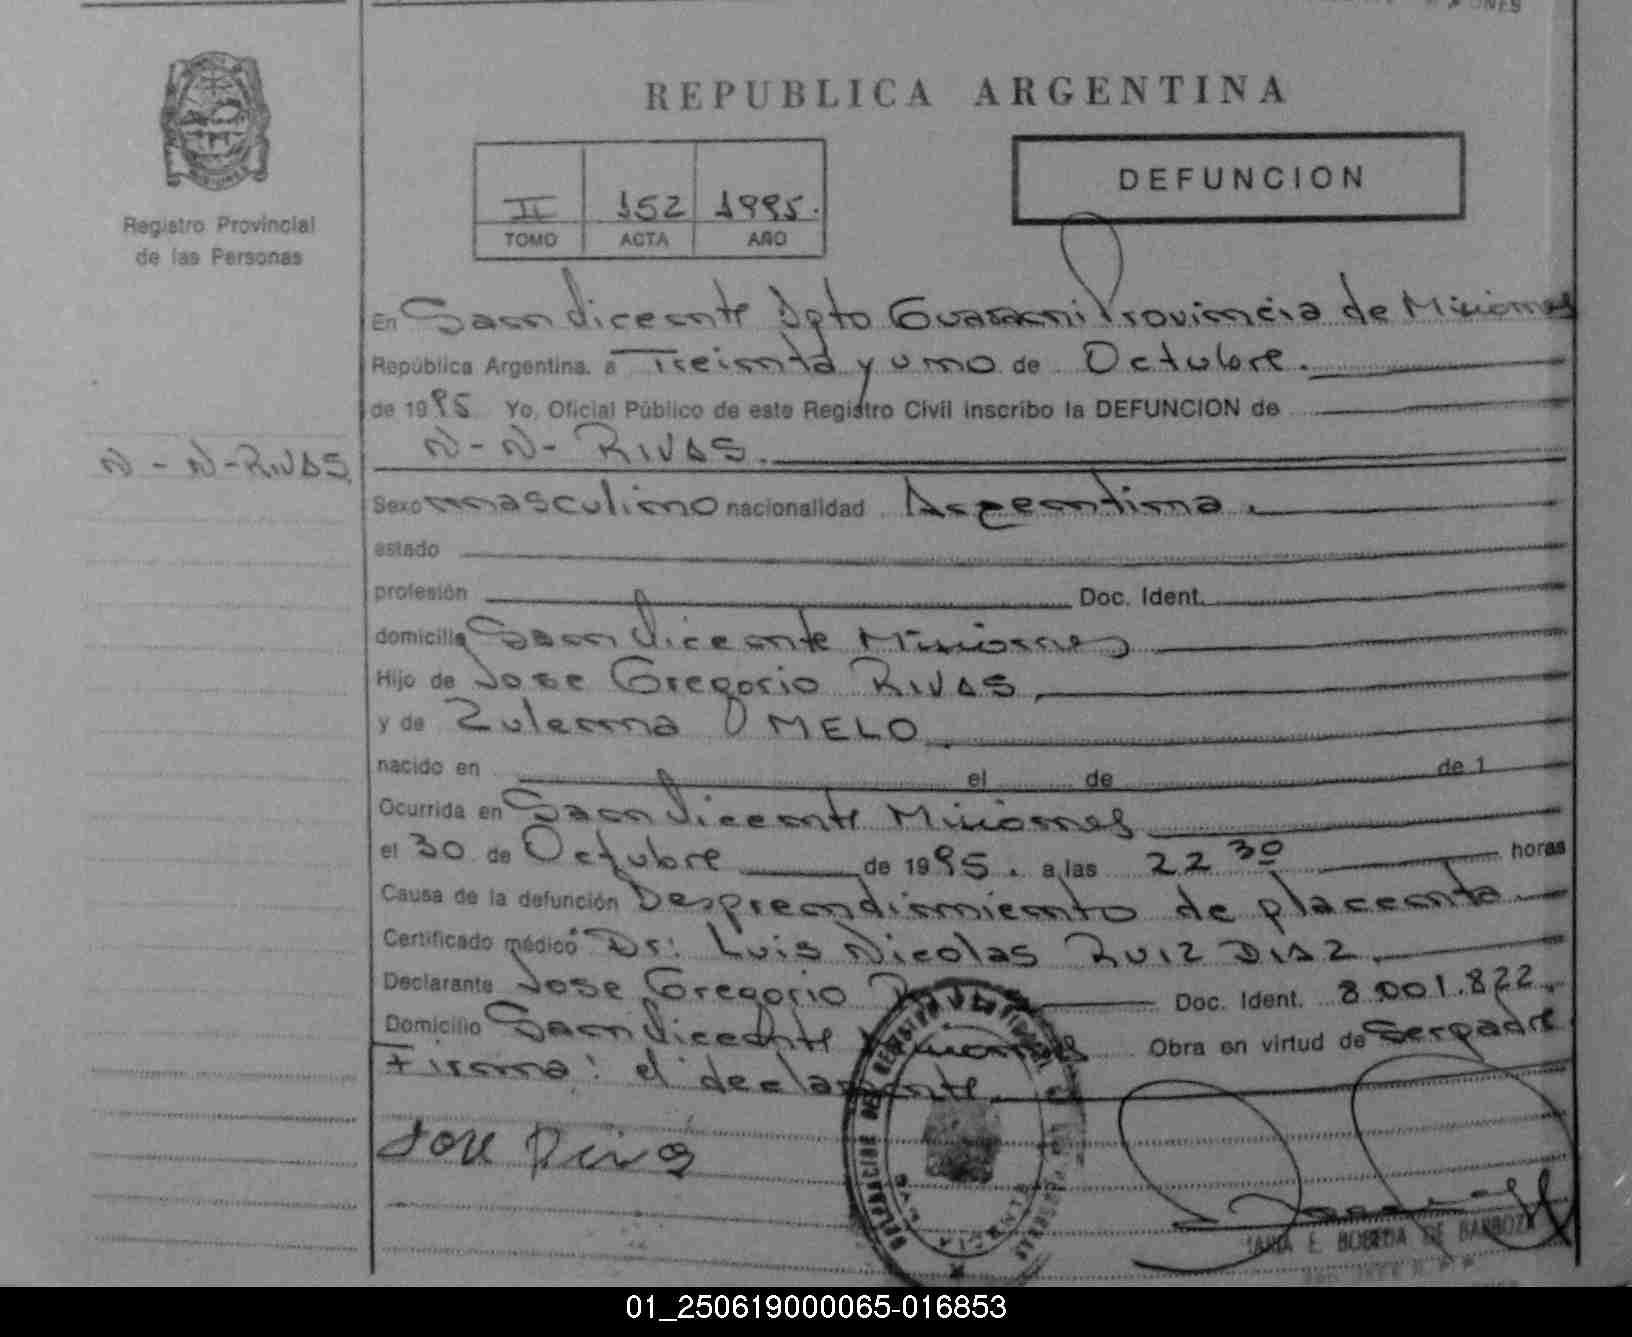 REPUBLICA ARGENTINA
DEFUNCION
II 152 1995.
TOMO ACTA AÑO
Registro Provincial
de las Personas
En San Vicente Dpto Guarani Provincia de Misiones
República Argentina, a Treinta y uno de Octubre.
de 1995 Yo, Oficial Público de este Registro Civil inscribo la DEFUNCION de
N-N- RIVAS.
N - N - RIVAS.
Sexo masculino nacionalidad Argentina.
estado
profesión Doc. Ident.
domicilio San Vicente Misiones
Hijo de Jose Gregorio RIVAS.
y de Zulema MELO.
nacido en el de de 1
Ocurrida en San Vicente Misiones
el 30 de Octubre de 1995. a las 22 30 horas
Causa de la defunción Desprendimiento de placenta
Certificado médico Dr: Luis Nicolas RUIZ DIAZ.
Declarante Jose Gregorio RIVAS Doc. Ident. 8.001.822.
Domicilio San Vicente Misiones Obra en virtud de Ser padre
Firma: el declarante.
Jose Riva
MARIA E. BOBEDA DE BARBOZA
01_250619000065-016853